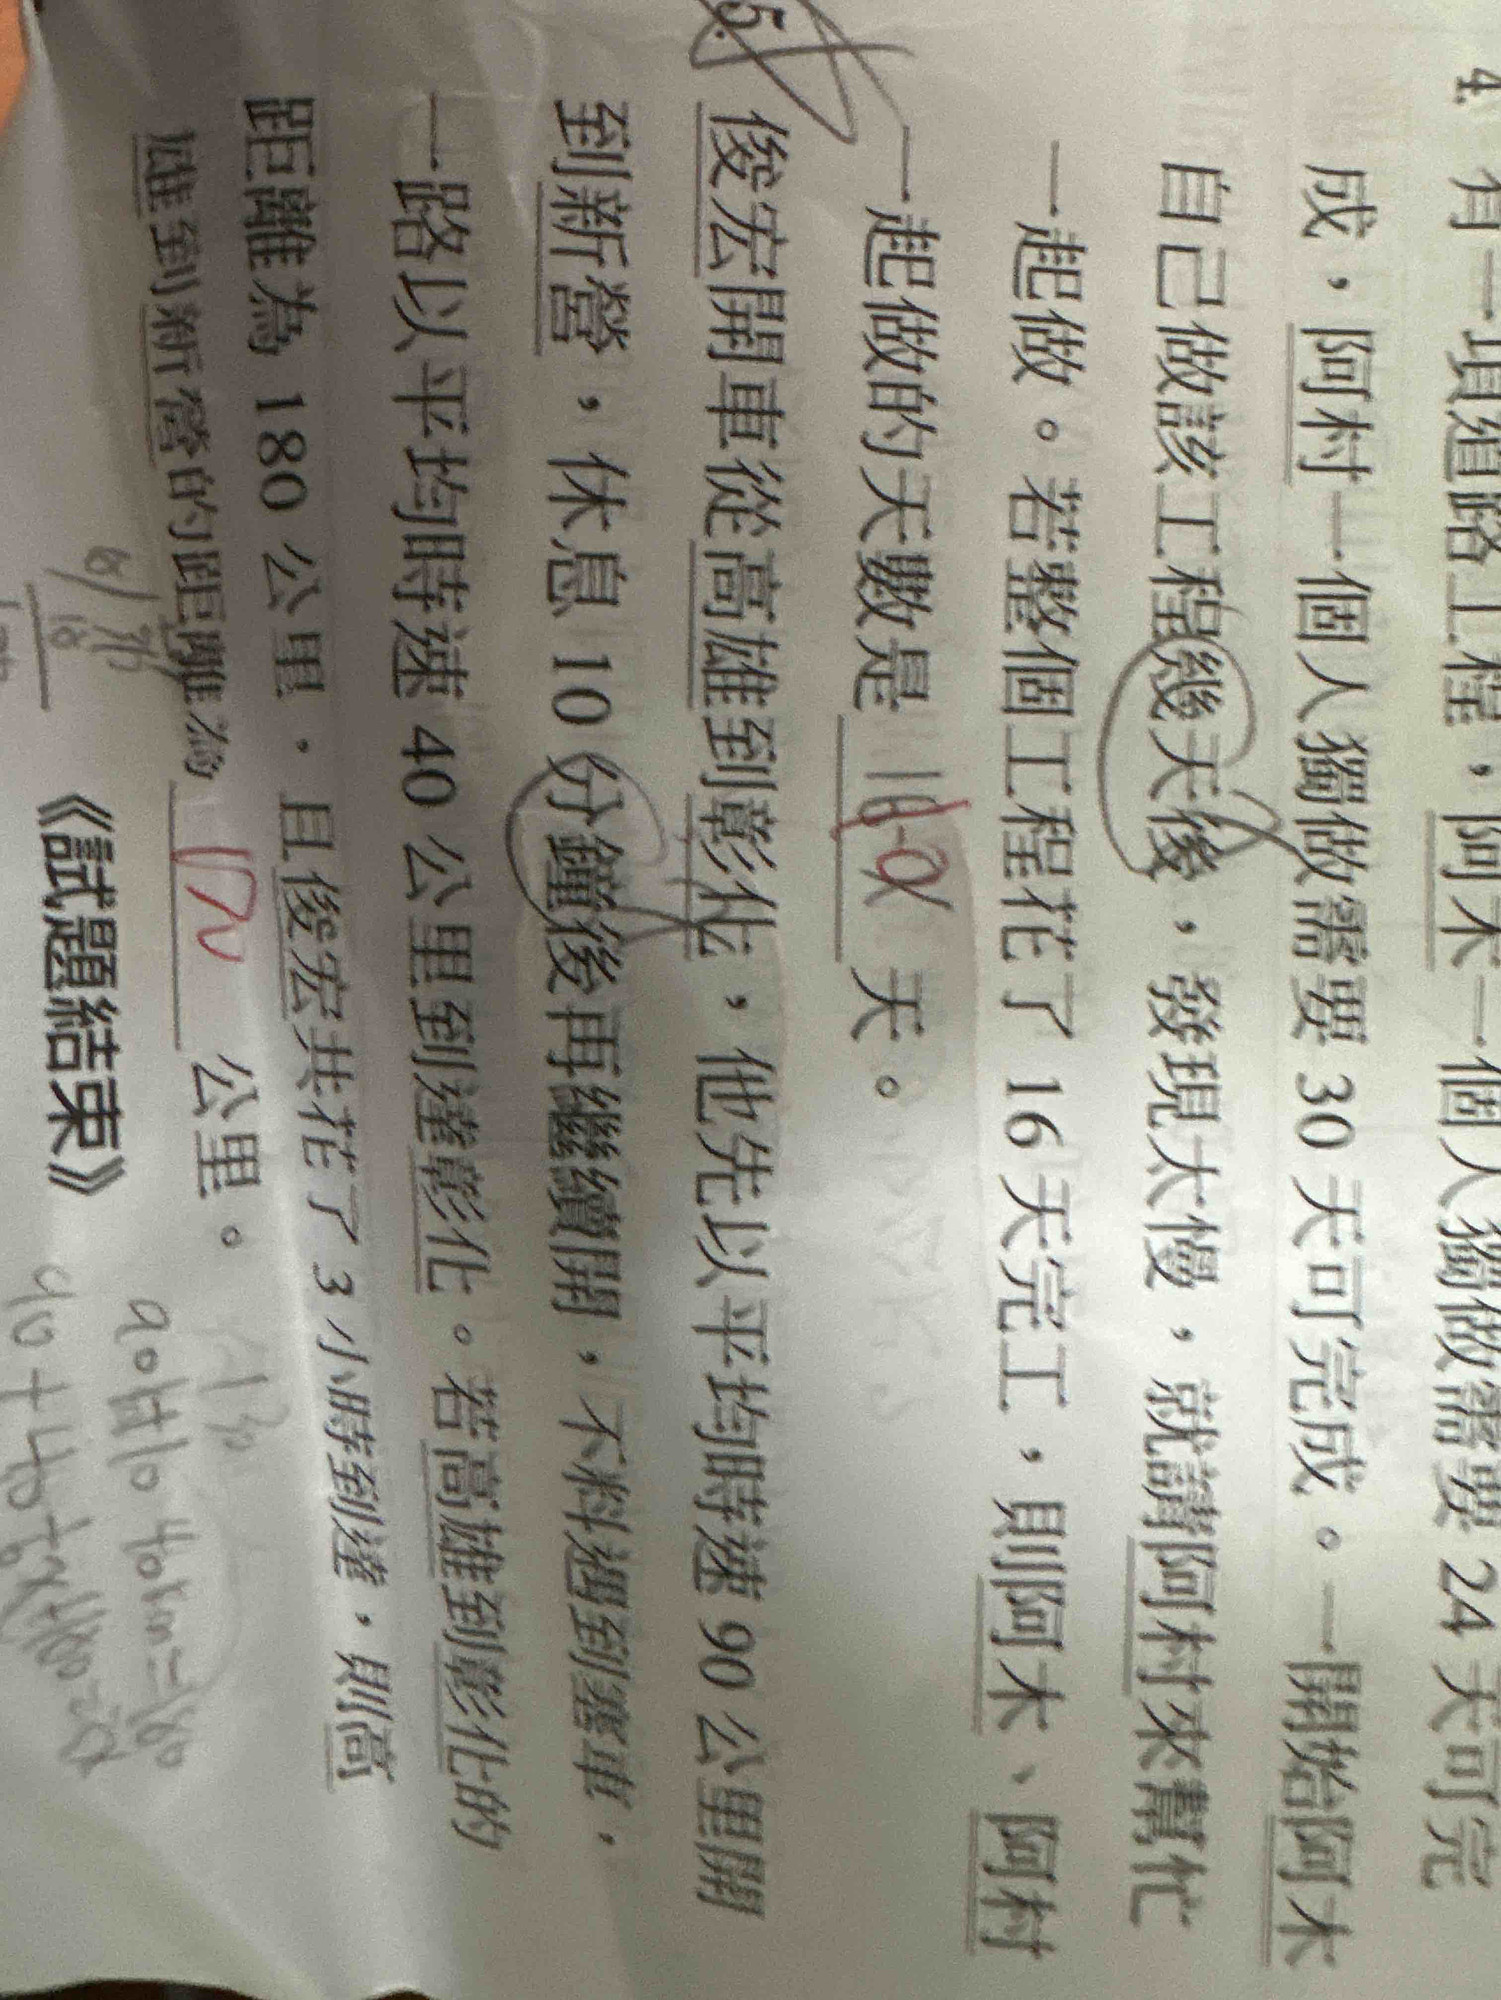 4. 有一項道路工程，阿木一個人獨做需要 24 天可完
成，阿村一個人獨做需要 30 天可完成。一開始阿木
自己做該工程幾天後，發現太慢，就請阿村來幫忙
一起做。若整個工程花了 16 天完工，則阿木、阿村
一起做的天數是 天。
5. 俊宏開車從高雄到彰化，他先以平均時速 90 公里開
到新營，休息 10 分鐘後再繼續開，不料遇到塞車，
一路以平均時速 40 公里到達彰化。若高雄到彰化的
距離為 180 公里，且俊宏共花了 3 小時到達，則高
雄到新營的距離為 公里。
《試題結束》